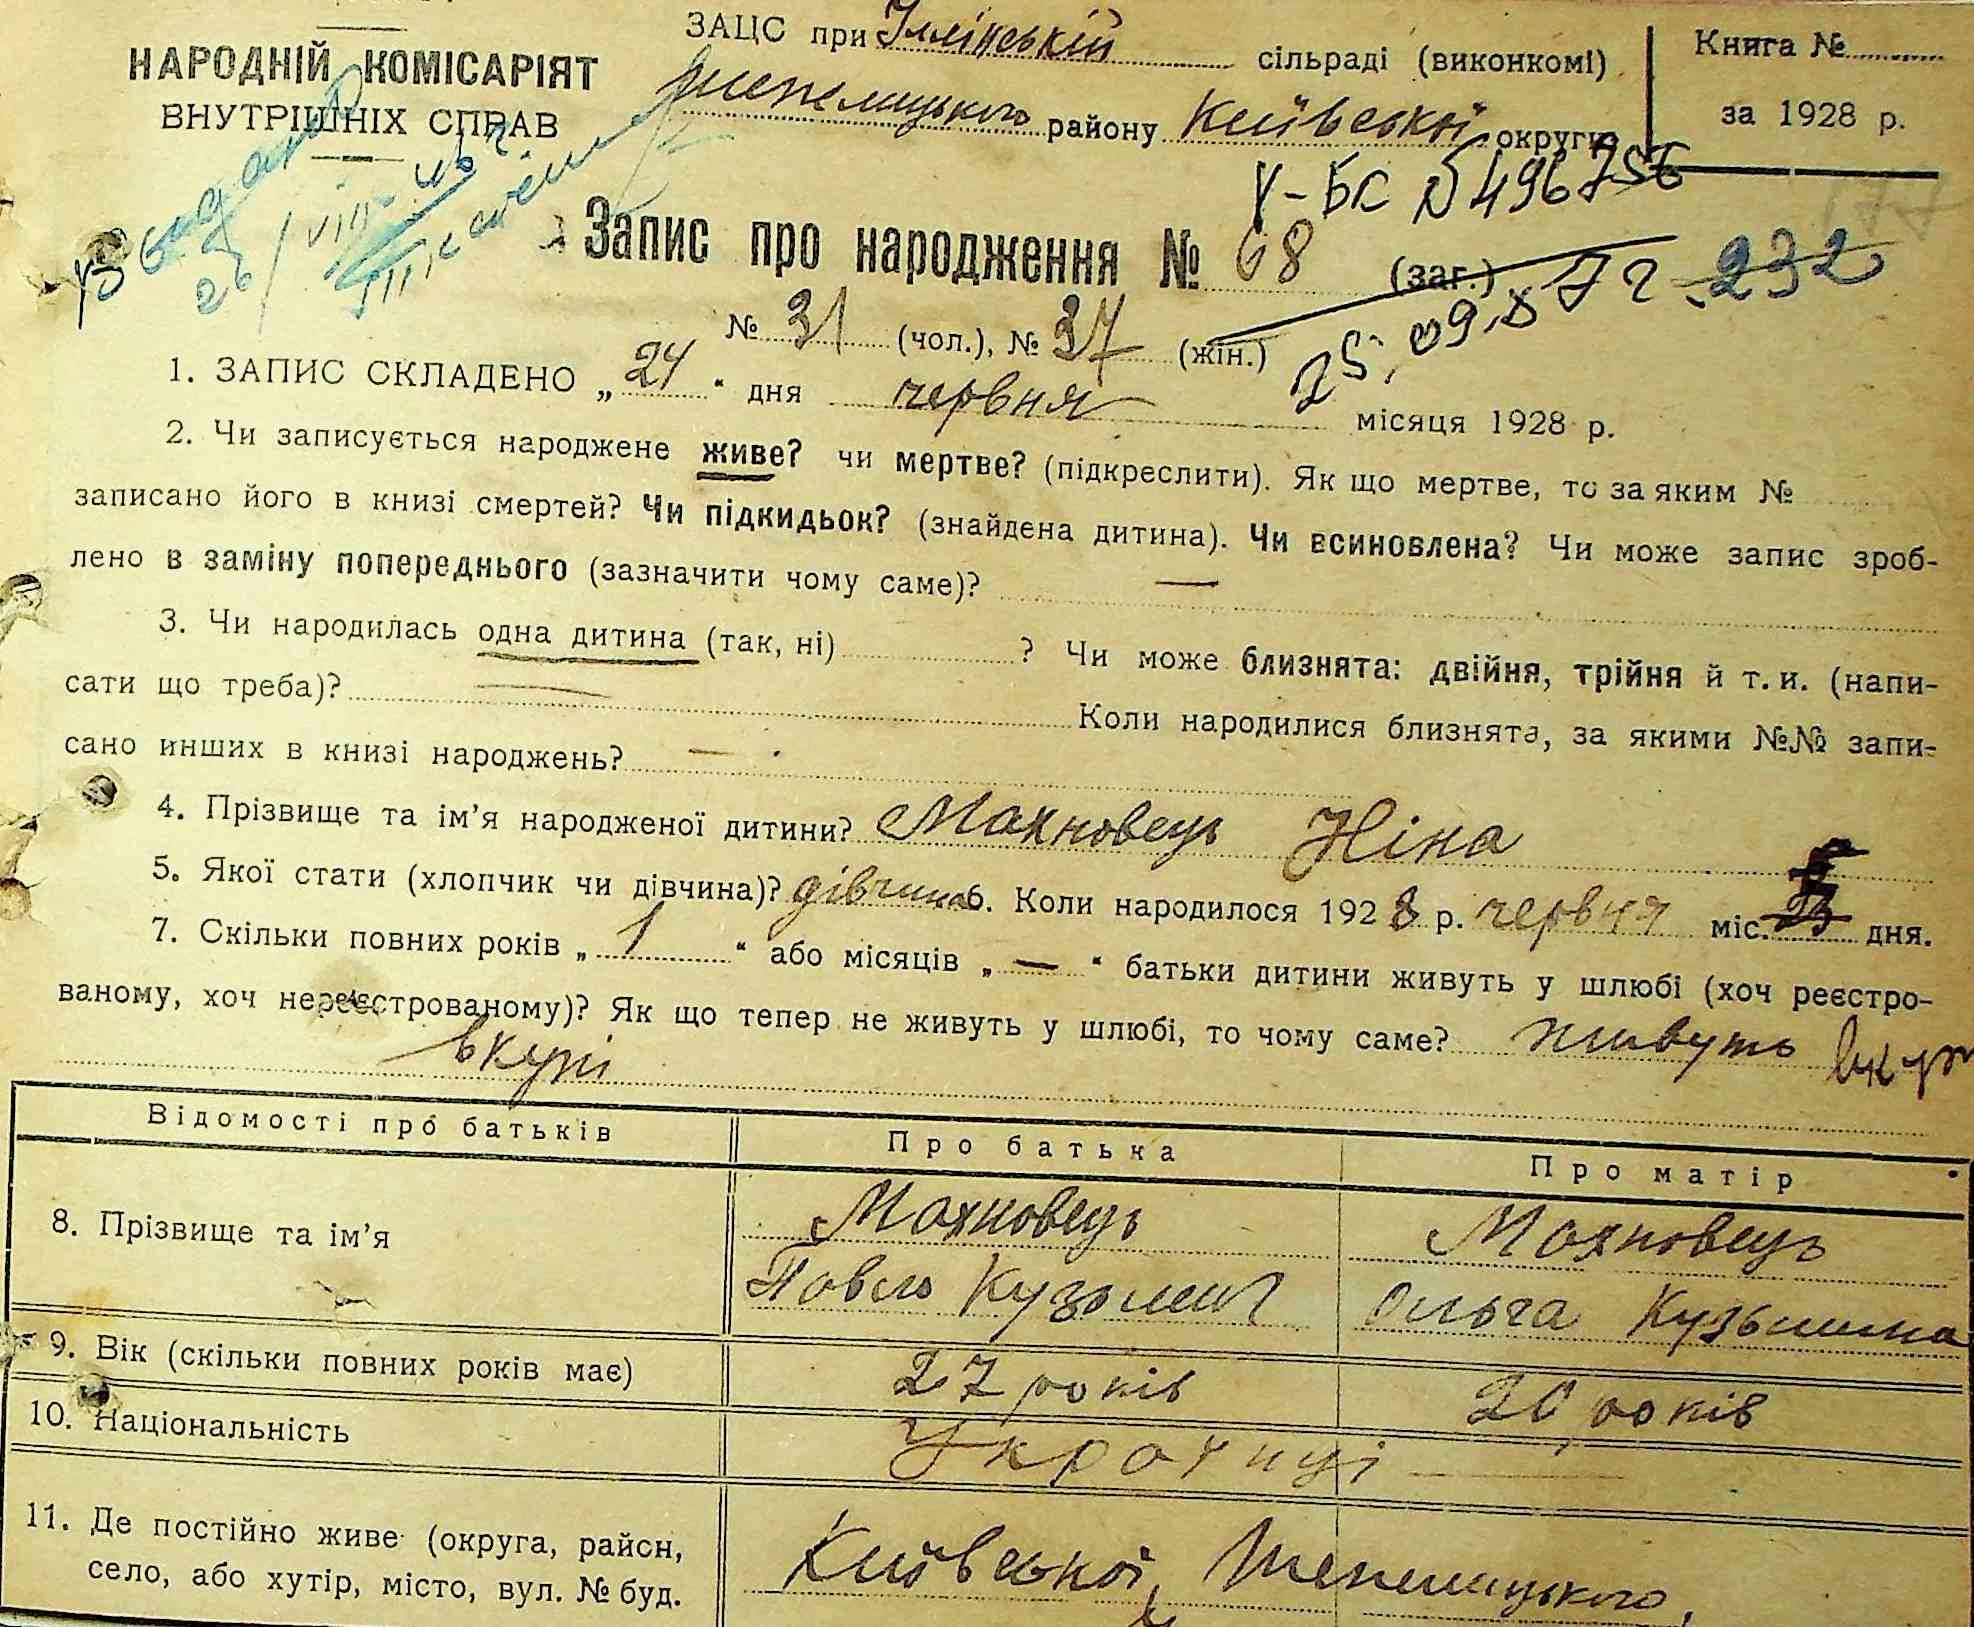 НАРОДНІЙ КОМІСАРІЯТ
ВНУТРІШНІХ СПРАВ
ЗАЦС при Іллінській сільраді (виконкомі)
Шепелицького району Київської округи
Книга №
за 1928 р.
У-БК №496756
Запис про народження № 68 (заг.)
25.09.87г. 232
№ 31 (чол.), № 37 (жін.)
1. ЗАПИС СКЛАДЕНО „24“ дня червня місяця 1928 р.
2. Чи записується народжене живе? чи мертве? (підкреслити). Як що мертве, то за яким №
записано його в книзі смертей? Чи підкидьок? (знайдена дитина). Чи всиновлена? Чи може запис зроб-
лено в заміну попереднього (зазначити чому саме)? —
3. Чи народилась одна дитина (так, ні) ? Чи може близнята: двійня, трійня й т. и. (напи-
сати що треба)? — Коли народилися близнята, за якими №№ запи-
сано инших в книзі народжень? —
4. Прізвище та ім’я народженої дитини? Махновець Ніна
5. Якої стати (хлопчик чи дівчина)? дівчина 6. Коли народилося 1928 р. червня міс. дня.
7. Скільки повних років „1“ або місяців „—“ батьки дитини живуть у шлюбі (хоч реєстро-
ваному, хоч нереєстрованому)? Як що тепер не живуть у шлюбі, то чому саме? живуть
вкупі
Відомості про батьків Про батька Про матір
8. Прізвище та ім’я Махновець Махновець
Павло Кузьмич Ольга Кузьмина
9. Вік (скільки повних років має) 27 років 20 років
10. Національність Українці
11. Де постійно живе (округа, район,
село, або хутір, місто, вул. № буд.
Київської, Шепелицького,